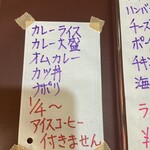 カレーライス
カレー大盛
オムカレー
カツ丼
ナポリ
1/4〜
アイスコーヒー
付きません
ハンバ
チーズ
ポー
チキ
海